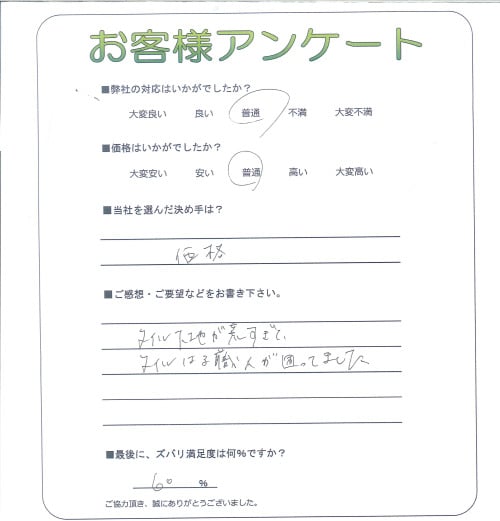 お客様アンケート
■弊社の対応はいかがでしたか?
大変良い 良い 普通 不満 大変不満
■価格はいかがでしたか?
大変安い 安い 普通 高い 大変高い
■当社を選んだ決め手は?
価格
■ご感想・ご要望などをお書き下さい。
タイル下地が荒すぎて、
タイルはる職人が困ってました
■最後に、ズバリ満足度は何%ですか?
60 %
ご協力頂き、誠にありがとうございました。